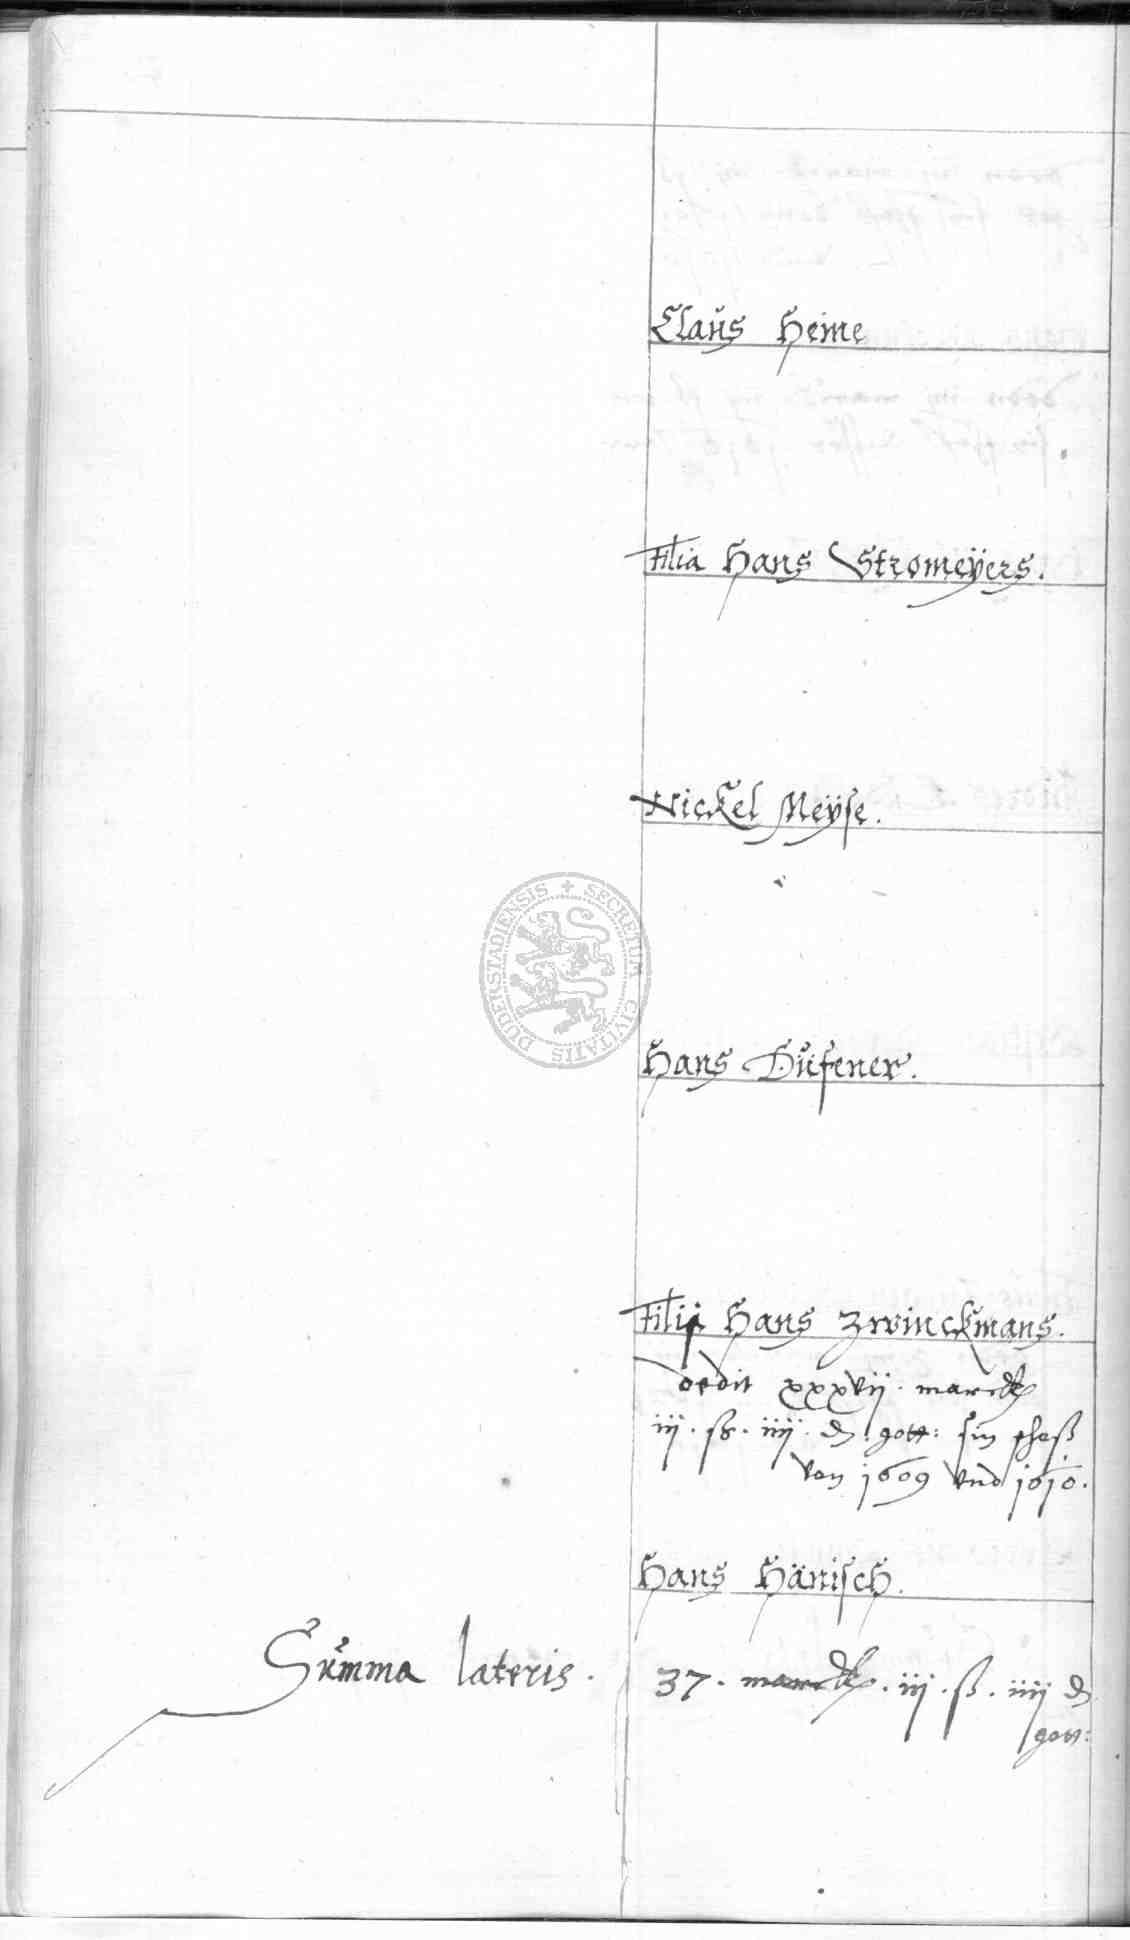 Claus Heine
Filia Hans Stromeÿers.
Nickel Meÿse.
DUDERSTADIENSIS + SECRETUM CIVITATIS
Hans Düfener.
Filia Hans Zwinckmans.
dedit xxxvij. marck
iij. ß. iiij. ₰. gott: sin schoß
von 1609 vnd 1610.
Hans Hänisch.
Summa lateris. 37. marck. iij. ß. iiij ₰
gott: